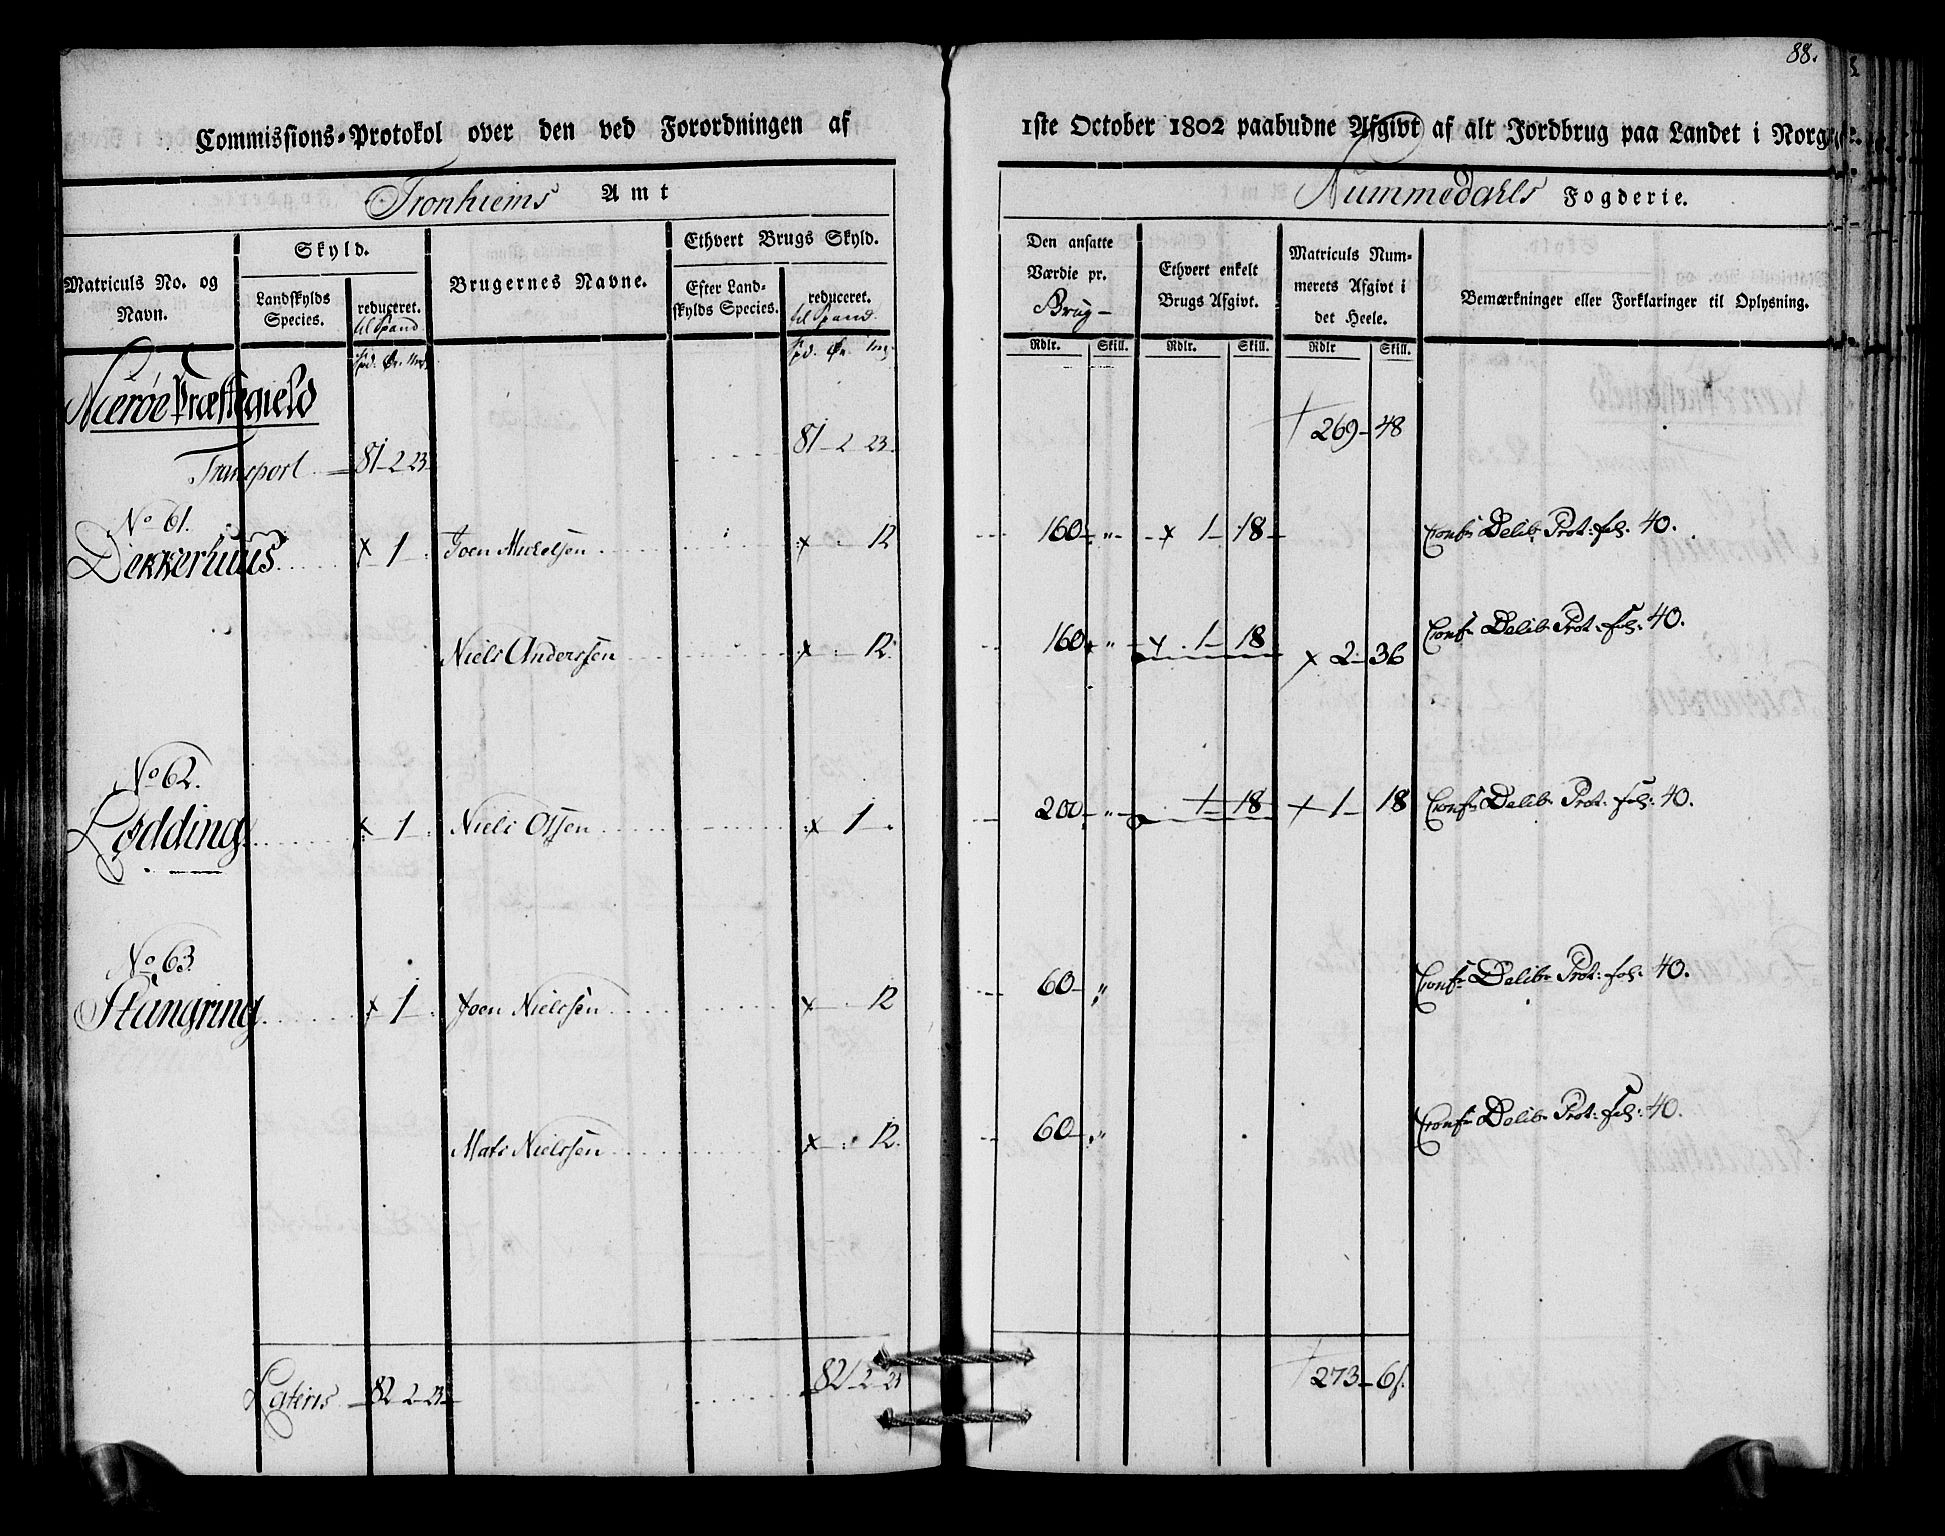 88.
Commissions-Protokol over den ved Forordningen af 1ste October 1802 paabudne Afgivt af alt Jordbrug paa Landet i Norg
Tronhiems Amt
Nummedahls Fogderie.
Matriculs No. og Navn.
Skyld.
Landskylds Species.
reduceret. til Spand
Brugernes Navne.
Ethvert Brugs Skyld.
Efter Landskylds Species.
reduceret. til Spand.
Den ansatte Værdie pr. Brug-
Ethvert enkelt Brugs Afgivt.
Matriculs Nummerets Afgivt i det Heele.
Bemærkninger eller Forklaringer til Oplysning.
Spd. Ør. Spd. Ør. Rdlr. Skill. Rdlr. Skill. Rdlr Skill.
Nærøe Præstegield
Transport 81-2 23. 81-2 23. 269-48
No 61.
Dekkerhuus x 1 Joen Mickelsen x 12 160 „ x 1-18 Conf: Delib: Prot: fol: 40.
Niels Anderssen x 12 160 „ x 1-18 x 2-36 Conf: Delib: Prot: fol: 40.
No 62.
Lødding x 1 Niels Olsen x 1 200 „ 1-18 x 1-18 Conf: Delib: Prot: fol: 40.
No 63.
Stungring x 1 Joen Nielssen x 12 60 „ Conf: Delib: Prot: fol: 40.
Mats Nielssen x 12. 60 „ Conf: Delib: Prot: fol: 40.
Lateris 82-2-23 82-2-23 273-6